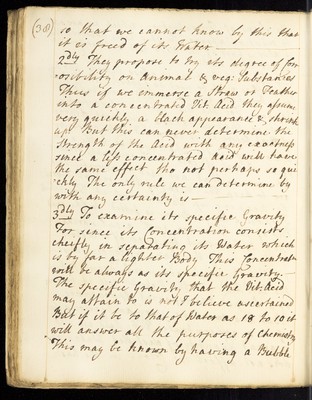 (38)
so that we cannot know by this that
it is freed of its Water
2dly They propose to try its degree of
on Animal & veg: Substances
Thus if we immerse a Straw or Feather
into a concentrated Vit: Acid they assume
very quickly a black appearance & shrink
up But this can never determine the
Strength of the Acid with any exactness
since a less concentrated Acid will have
the same effect tho not perhaps so qui
ckly The only rule we can determine by
with any certainty is
3dly To examine its specific Gravity
For since its Concentration consists
cheifly in separating its Water which
is by far a lighter Body This Concentratn
will be always as its specific Gravity.
The specific Gravity that the Vit: Acid
may attain to is not I believe ascertained
But if it be to that of Water as 18 to 10 it
will answer all the purposes of Chemistry
This may be known by having a Bubble